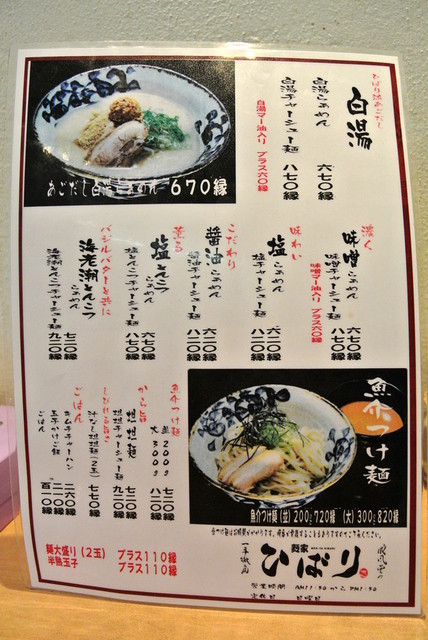 ひばり流あごだし
白湯
白湯らぁめん 六七〇縁
白湯チャーシュー麺 八七〇縁
白湯マー油入り プラス六〇縁
あごだし白湯らぁめん 670縁
濃く
味噌らぁめん 六七〇縁
味噌チャーシュー麺 八七〇縁
味噌マー油入り プラス六〇縁
味わい
塩らぁめん 六二〇縁
塩チャーシュー麺 八二〇縁
こだわり
醤油らぁめん 六二〇縁
醤油チャーシュー麺 八二〇縁
薫る
塩とんこつらぁめん 六七〇縁
塩とんこつチャーシュー麺 八七〇縁
バジルバターと共に
海老潮とんこつらぁめん 七二〇縁
海老潮とんこつチャーシュー麺 九二〇縁
魚介つけ麺
魚介つけ麺
並 200g 七二〇縁
大 300g 八二〇縁
から旨
担担麺 七二〇縁
担担チャーシュー麺 九二〇縁
しびれる旨さ
汁なし担担麺(2玉) 七七〇縁
ごはん
キムチチャーハン 二六〇縁
玉子かけご飯 二一〇縁
ごはん 百一〇縁
魚介つけ麺 (並) 200g 720縁 (大) 300g 820縁
麺大盛り(2玉) プラス110縁
半熟玉子 プラス110縁
麺家
ひばり
営業時間
定休日 日曜日